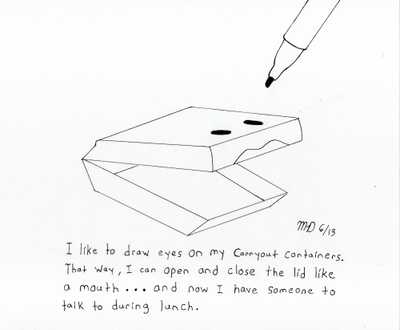 MD 6/13
I like to draw eyes on my Carryout Containers.
That way, I can open and close the lid like
a mouth... and now I have someone to
talk to during lunch.